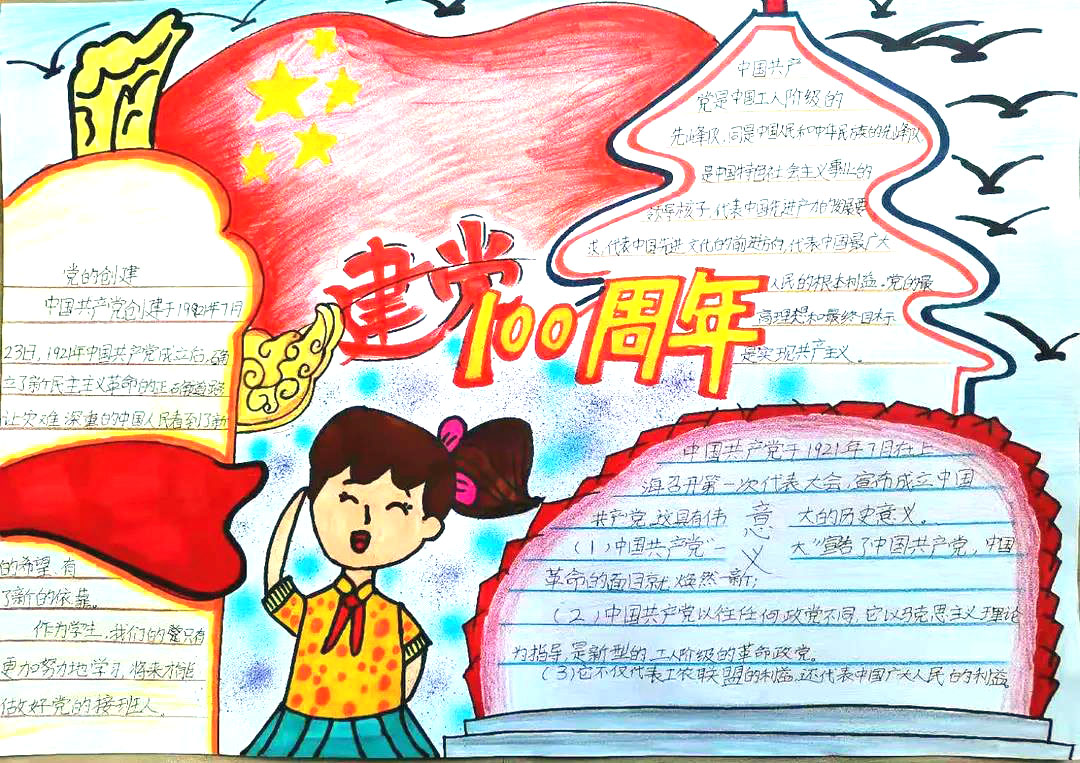 建党
100周年
党的创建
中国共产党创建于1992年7月
23日，1921年中国共产党成立后，确
立了新民主主义革命的正确道路
让灾难深重的中国人民看到了新
的希望，有
了新的依靠。
作为学生，我们的党只有
更加努力地学习，将来才能
做好党的接班人。
中国共产
党是中国工人阶级的
先峰队，同是中国人民和中华民族的先峰队
是中国特色社会主义事业的
领导核子，代表中国先进产力的发展要
求，代表中国先进文化的前进方向，代表中国最广大
人民的根本利益。党的最
高理想和最终目标
是实现共产主义。
意义
中国共产党于1921年7月在上
海召开第一次代表大会，宣布成立中国
共产党，这具有伟大的历史意义。
(1)中国共产党"一大"宣告了中国共产党，中国
革命的面目就焕然一新；
(2)中国共产党以往任何政党不同，它以马克思主义理论
为指导，是新型的，工人阶级的革命政党。
(3)它不仅代表工农联盟的利益，还代表中国广大人民的利益。